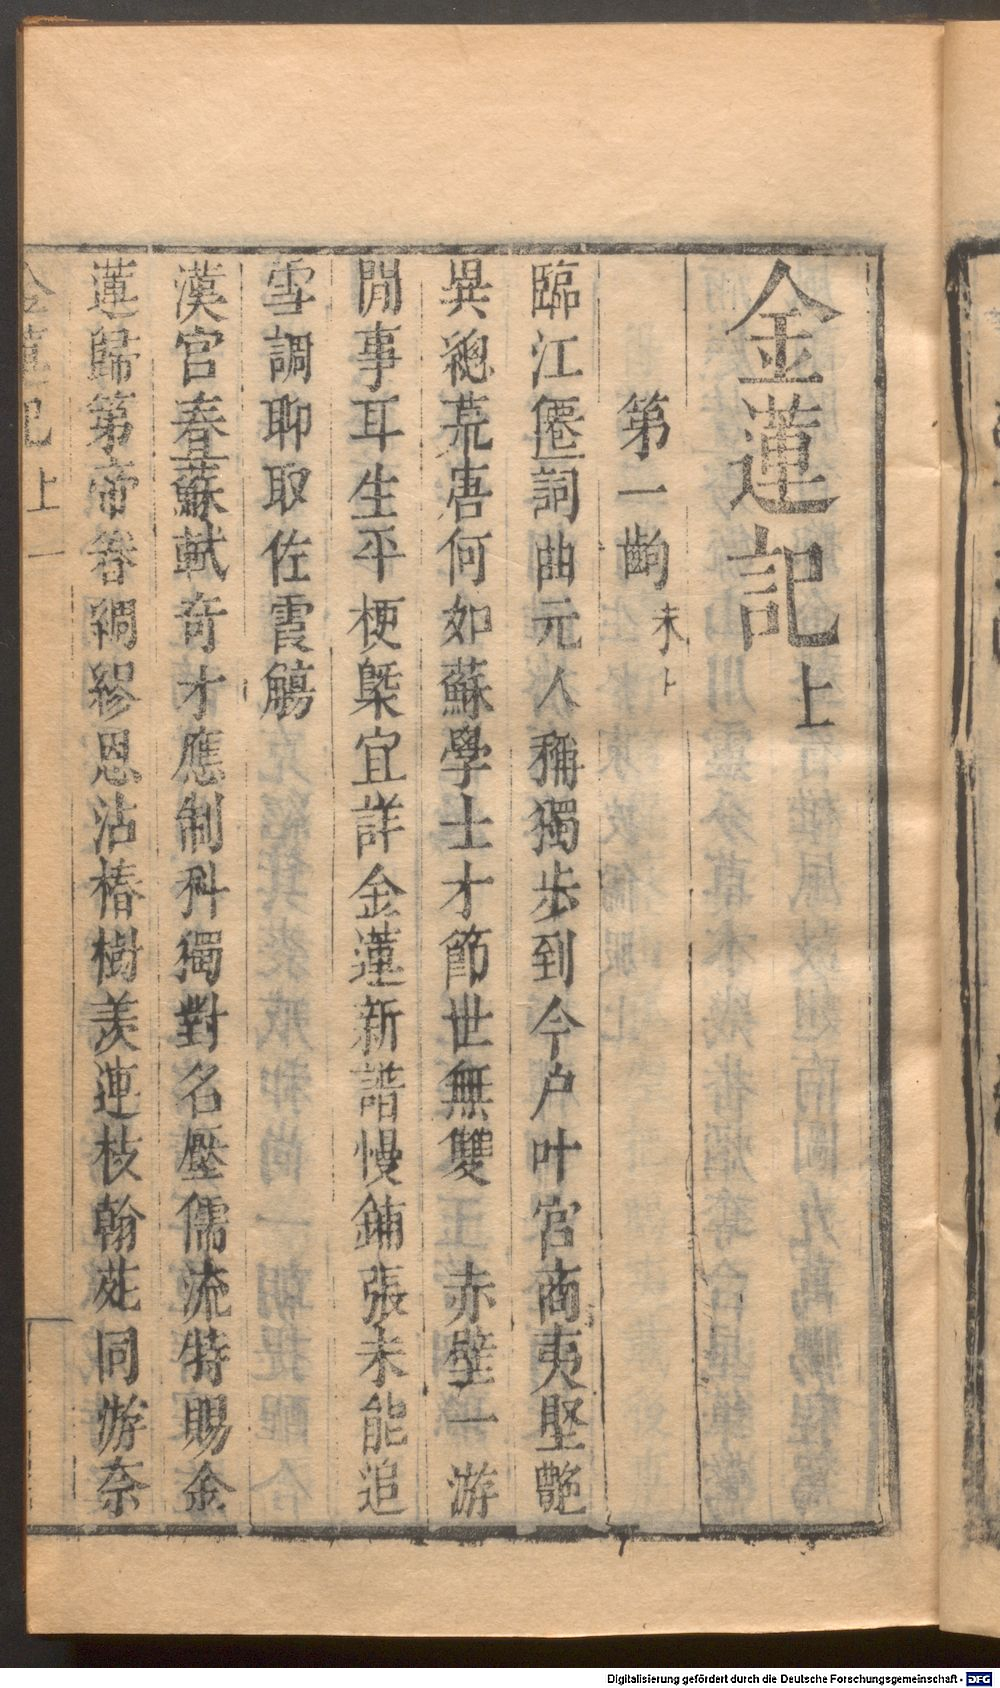 金蓮記上
第一齣 末上
臨江僊詞曲元人稱獨步到今户叶宮商夷堅艶
異總荒唐何如蘇學士才節世無雙　赤壁一游
閒事耳生平梗槩宜詳金蓮新譜慢鋪張未能追
雪調聊取佐霞觴
漢宮春蘇軾奇才應制科獨對名壓儒流特賜金
蓮歸第帝眷綢繆恩沾椿樹羡連枝翰苑同游奈
金蓮記 上 一
Digitalisierung gefördert durch die Deutsche Forschungsgemeinschaft - DFG